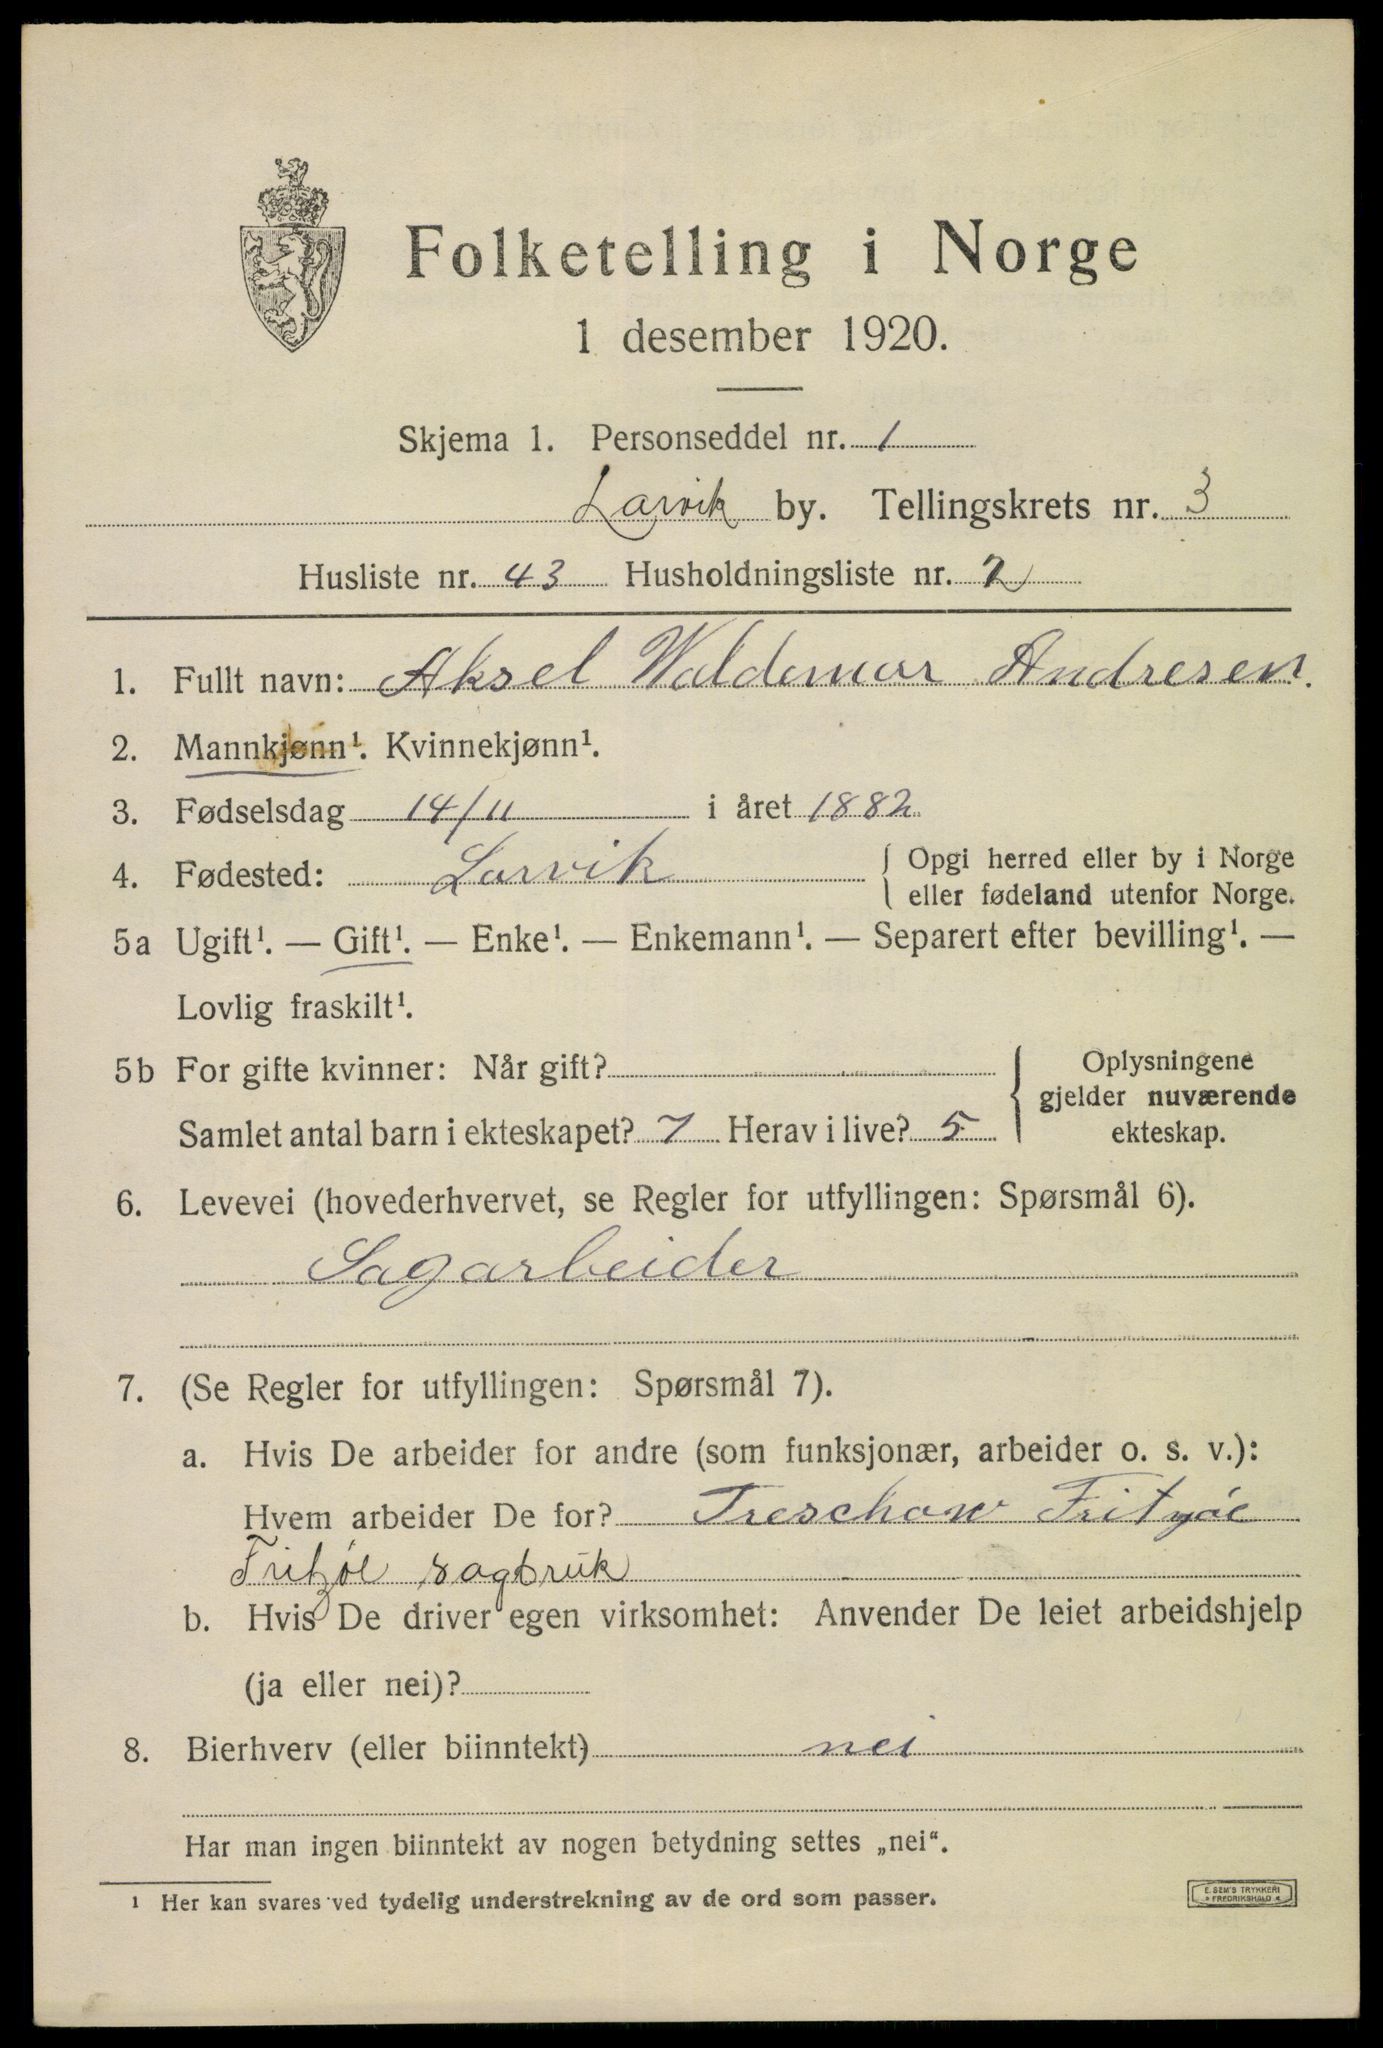 Folketelling i Norge
1 desember 1920.
Skjema 1. Personseddel nr. 1
Larvik by. Tellingskrets nr. 3
Husliste nr. 43 Husholdningsliste nr. 2
1. Fullt navn: Aksel Waldemar Andresen.
2. Mannkjønn¹. Kvinnekjønn¹.
3. Fødselsdag 14/11 i året 1882
4. Fødested: Larvik { Opgi herred eller by i Norge
eller fødeland utenfor Norge.
5a Ugift¹. — Gift¹. — Enke¹. — Enkemann¹. — Separert efter bevilling¹. —
Lovlig fraskilt¹.
5b For gifte kvinner: Når gift?
Samlet antal barn i ekteskapet? 7 Herav i live? 5
{ Oplysningene
gjelder nuværende
ekteskap.
6. Levevei (hovederhvervet, se Regler for utfyllingen: Spørsmål 6).
Sagarbeider
7. (Se Regler for utfyllingen: Spørsmål 7).
a. Hvis De arbeider for andre (som funksjonær, arbeider o. s. v.):
Hvem arbeider De for? Treschow Fritzøe
Fritzøe sagbruk
b. Hvis De driver egen virksomhet: Anvender De leiet arbeidshjelp
(ja eller nei)?
8. Bierhverv (eller biinntekt) nei
Har man ingen biinntekt av nogen betydning settes „nei“.
¹ Her kan svares ved tydelig understrekning av de ord som passer.
E. SEM'S TRYKKERI
FREDRIKSHALD